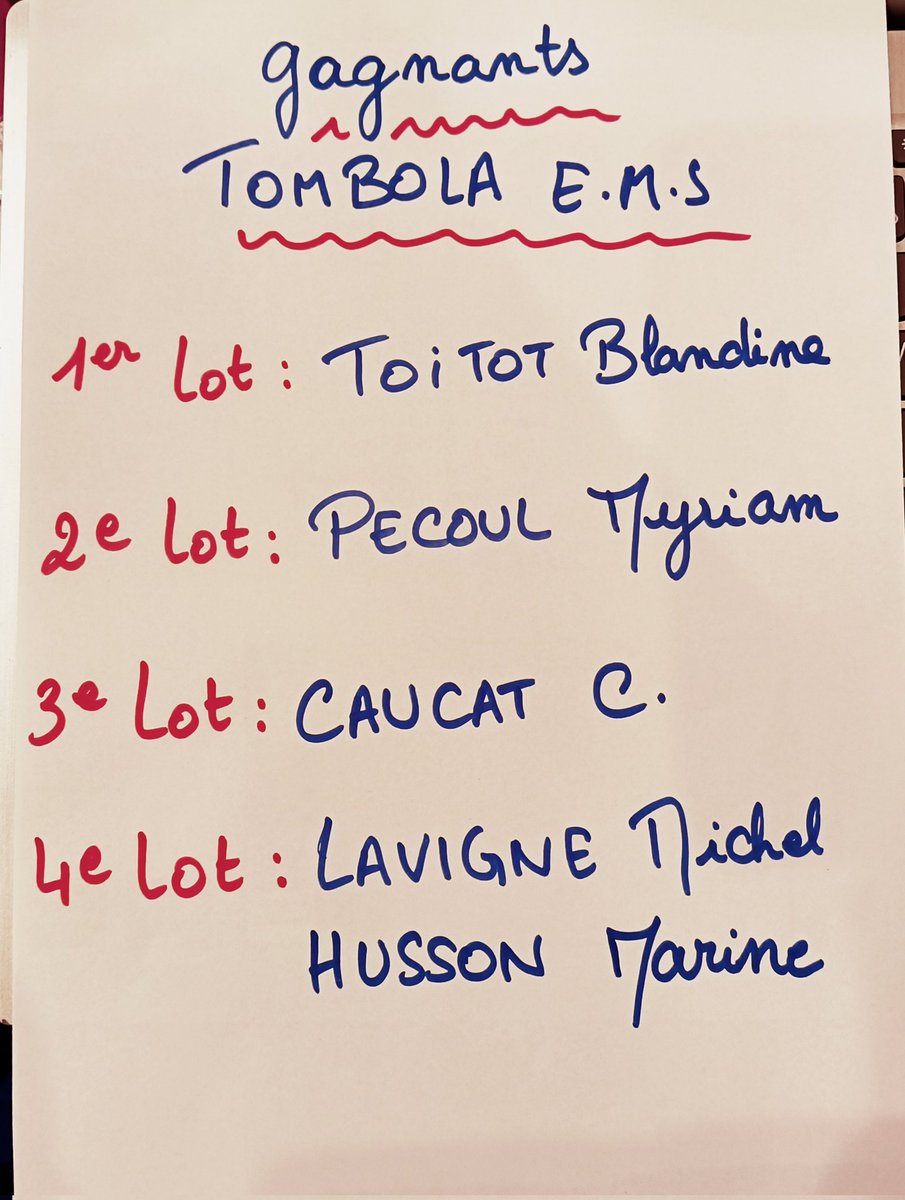 gagnants
TOMBOLA E.M.S
1er lot : TOiTOT Blandine
2e lot : PECOUL Myriam
3e lot : CAUCAT C.
4e lot : LAVIGNE Michel
HUSSON Marine